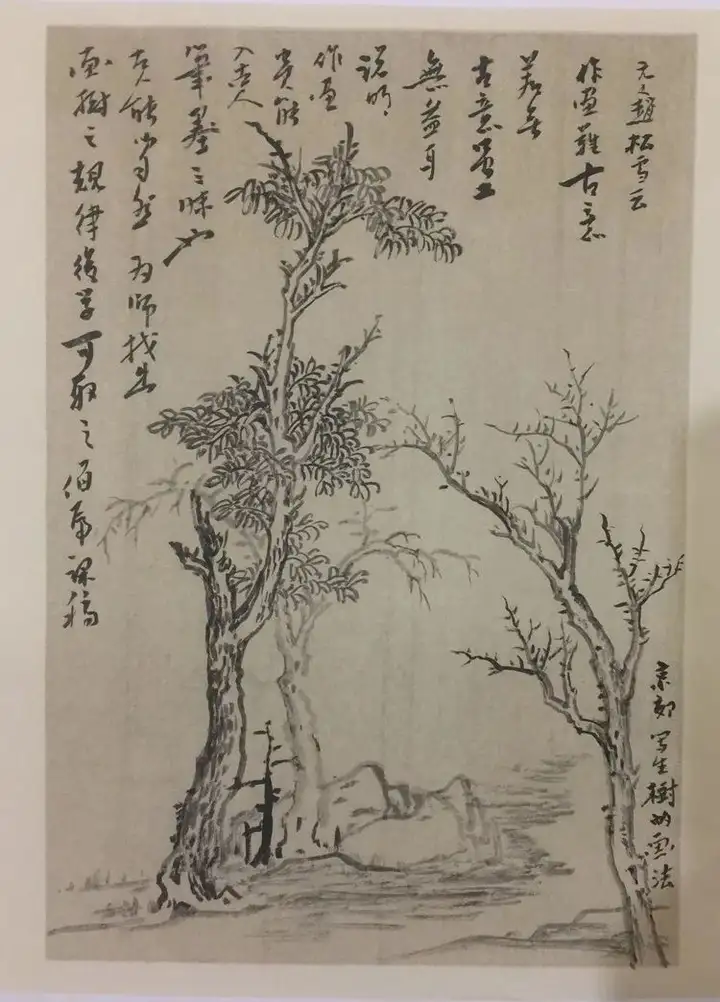 元人趙松雪云
作画難古意
若无
古意虽工
無益耳
说明
作画
貴能
入古人
筆墨三昧也
尤能以自然为师找出
画樹之規律後学可取之伯课稿
京郊写生樹的画法